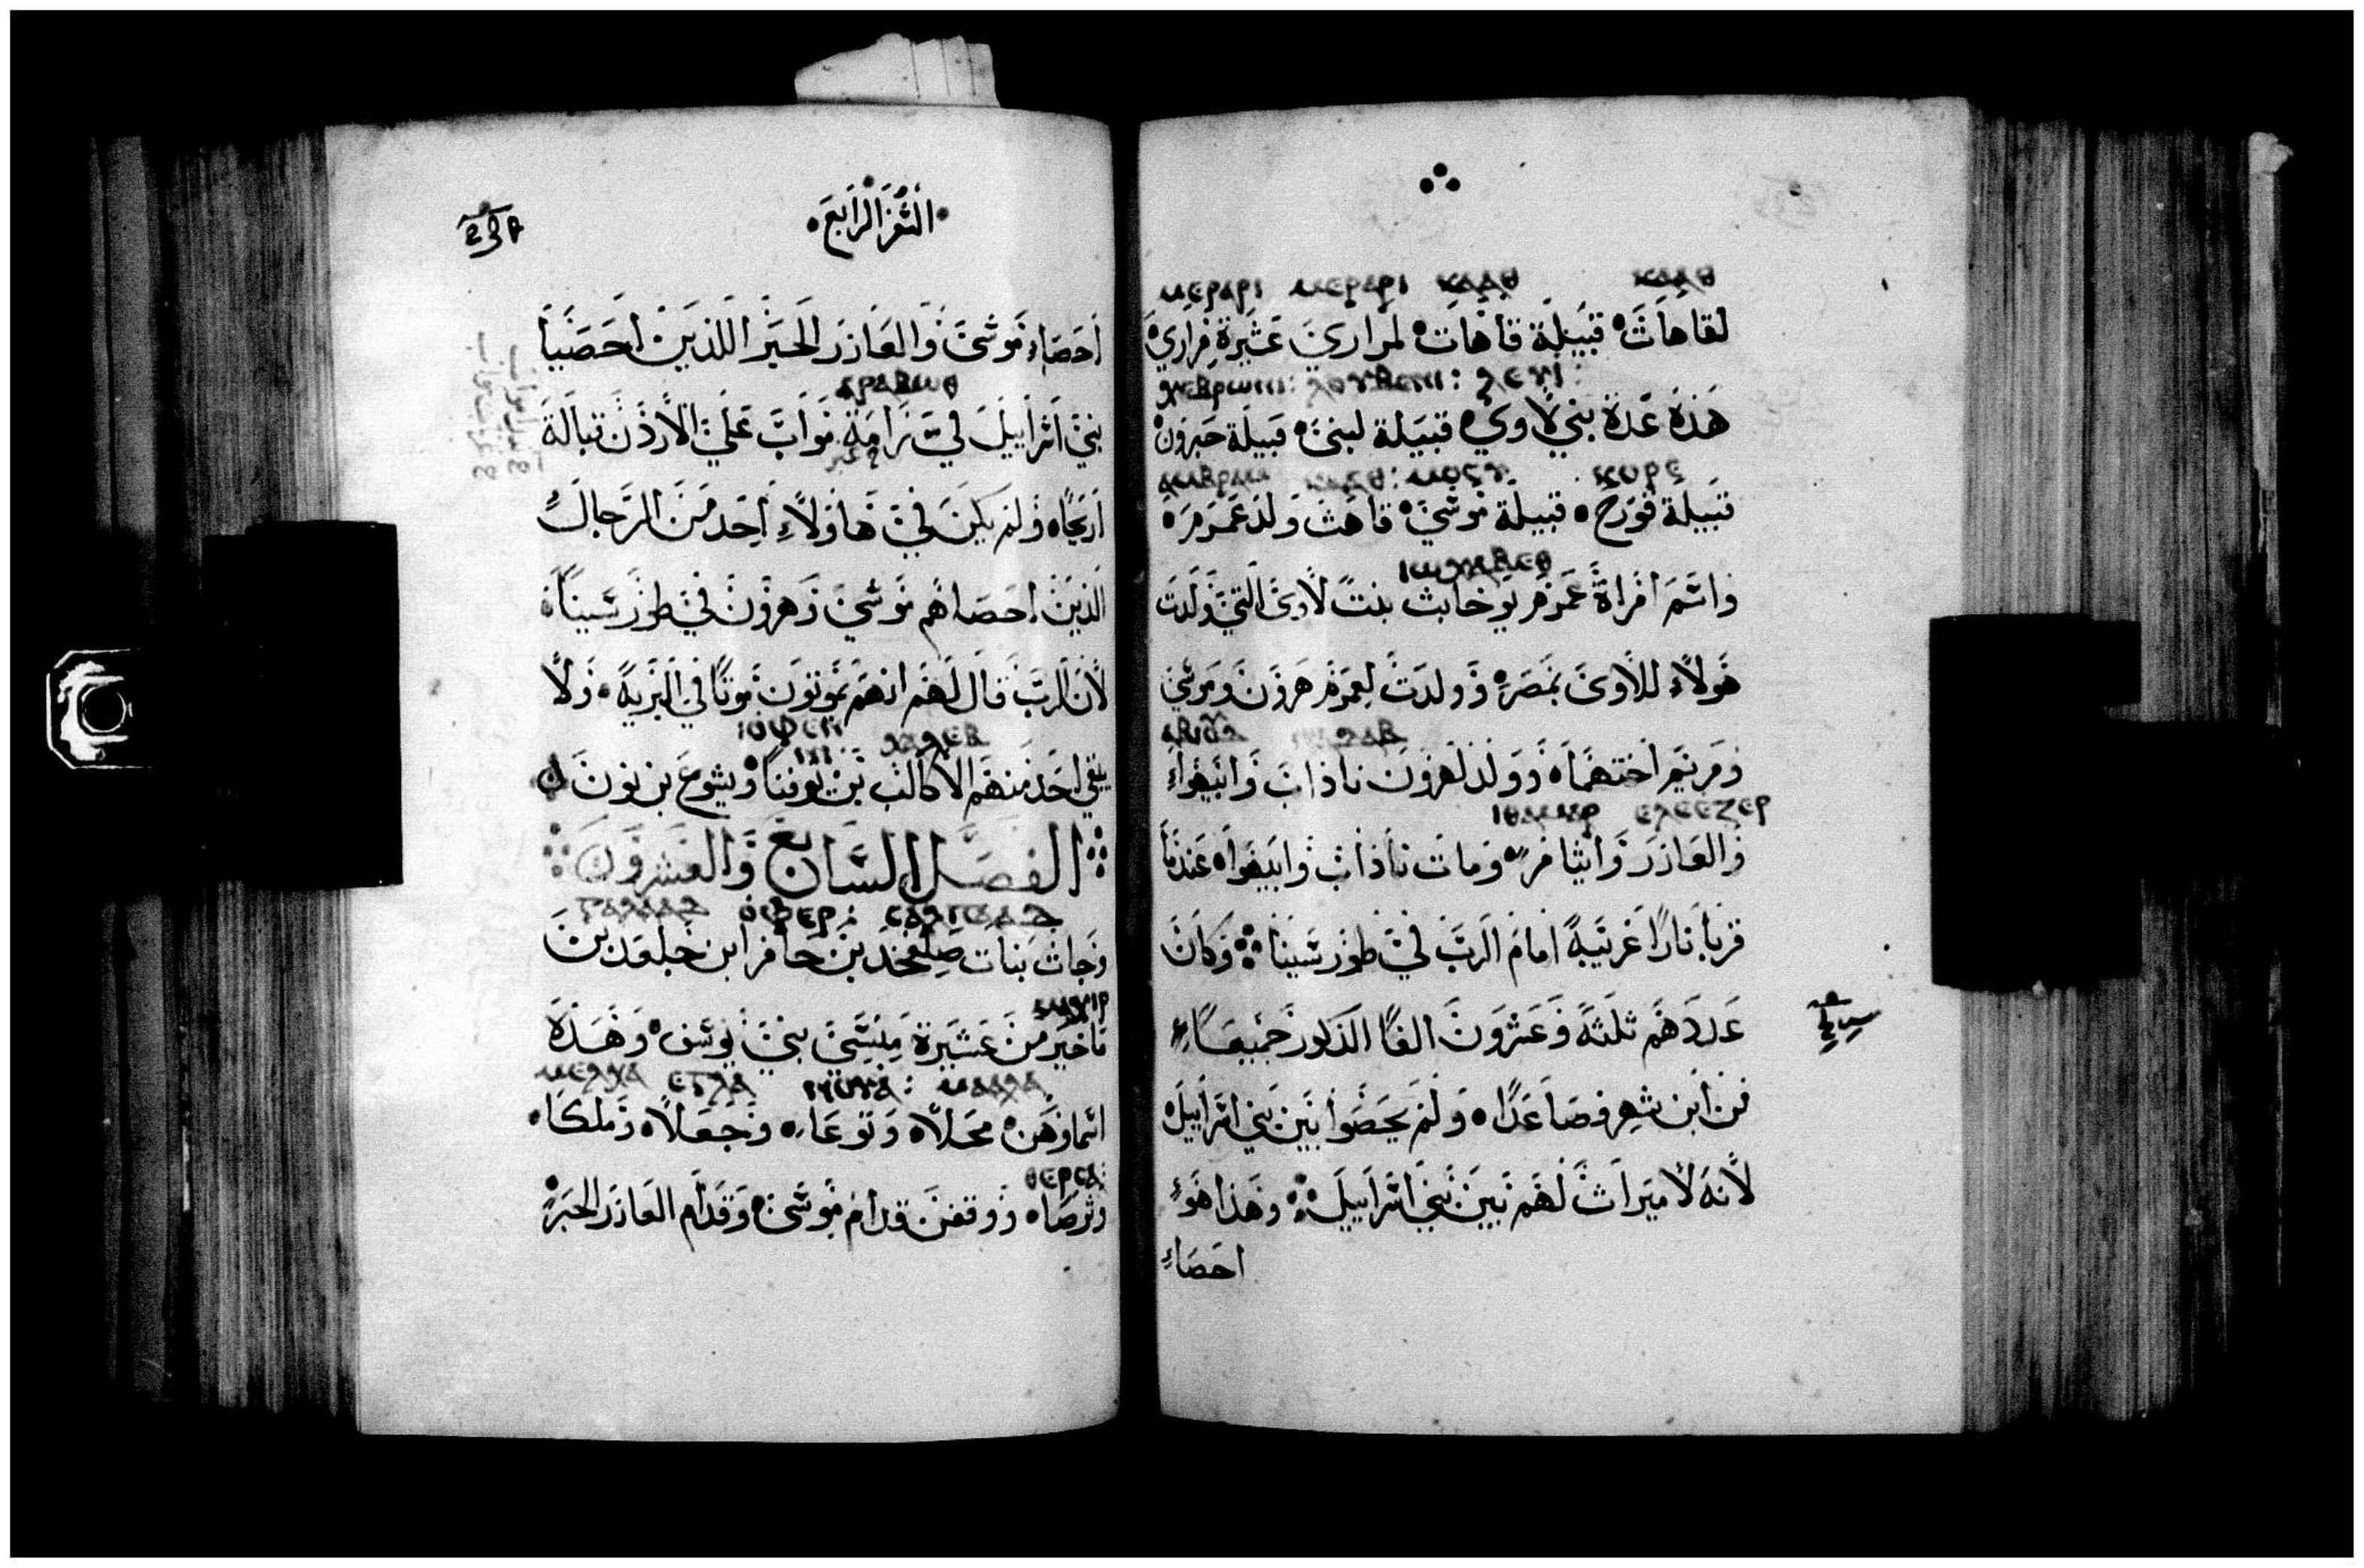 ⲕⲁⲁⲑ ⲕⲁⲁⲑ ⲙⲉⲣⲁⲣⲓ ⲙⲉⲣⲁⲣⲓ
لقاهاث قبيلة قاهات لمراري عشيرة مراري
هذه عدة بني لاوي قبيلة لبني قبيلة حبرون
ⲕⲟⲣⲉ
قبيلة قورح قبيلة موسي قاهث ولد عمرم
ⲓⲱⲭⲁⲃⲉⲑ
واسم امراة عمرم يوخابث بنت لاوي التي ولدت
هولاء للاوي بمصر وولدت لعمرم هرون وموسي
ومريم اختهما وولد لهرون ناذاب وابيهواء
ⲉⲗⲉⲉⲍⲉⲣ ⲓⲑⲁⲙⲁⲣ
والعازر وايثامر ومات ناذاب وابيهوا عندما
قربا نارا غريبة امام الرب في طور سينا وكان
عددهم ثلثة وعشرون الفا الذكور جميعاء
من ابن شهر فصاعدا ولم يحصوا بين بني اسراييل
لانه لا ميراث لهم بين بني اسراييل وهذا هو
احصاء
السفر الرابع
احصاء موسي والعازر الحبر اللذين احصيا
ⲁⲣⲁⲃⲱⲑ
بني اسراييل في مواب علي الاردن قبالة
اريحا ولم يكن في هاولاء احد من الرجال
الذين احصاهم موسي وهرون في طور سينا
لان الرب قال لهم انهم يموتون موتا في البرية ولا
ⲭⲁⲗⲉⲃ ⲓⲟⲫⲉⲛⲛⲓ
يبقي احد منهم الا كالب بن يوفنا ويشوع بن نون
الفصل السابع والعشرون
ⲥⲁⲗⲡⲁⲁⲇ ⲟⲫⲉⲣ ⲅⲁⲗⲁⲁⲇ
وجات بنات صلفحد بن حافر ابن جلعد بن
ⲙⲁⲭⲓⲣ
ماخير من عشيرة منسي بني يوسف وهذه
ⲙⲁⲁⲗⲁ ⲛⲟⲩⲁ ⲉⲅⲗⲁ ⲙⲉⲗⲭⲁ
اسماوهن محلا ونوعا وحجلا وملكا
ⲑⲉⲣⲥⲁ
وثرصا ووقفن قدام موسي وقدام العازر الحبر